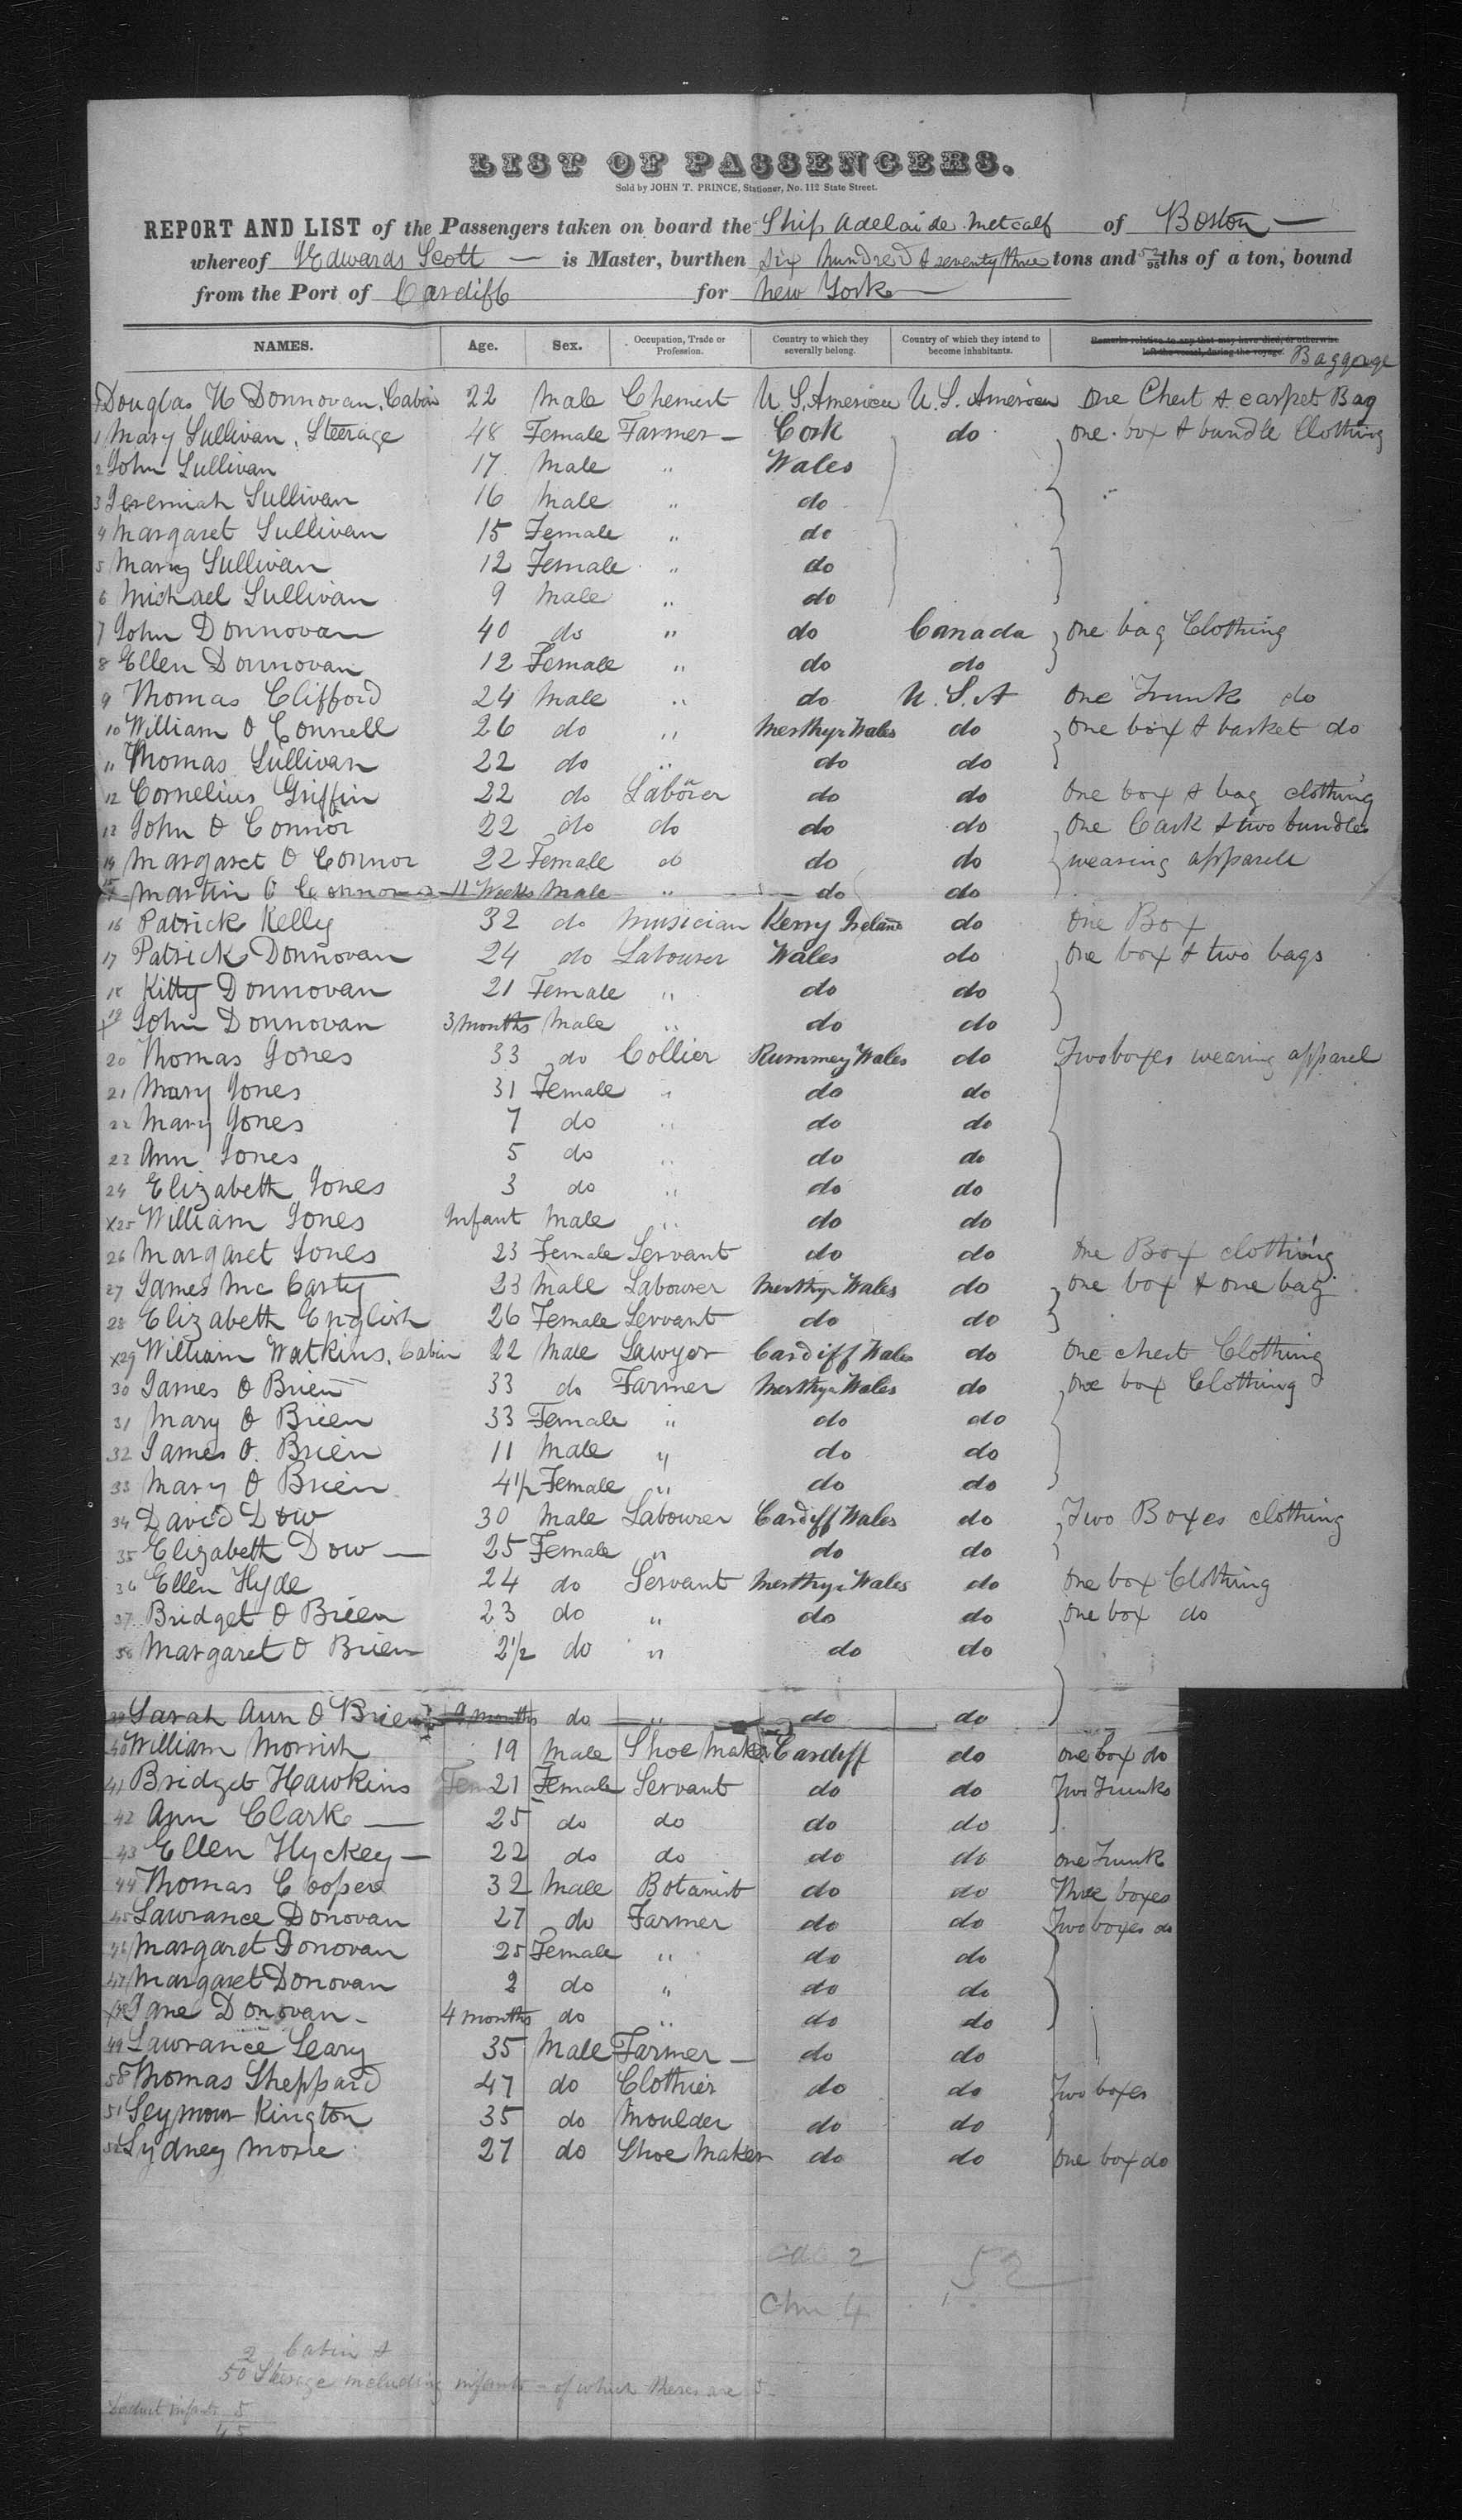 LIST OF PASSENGERS.
Sold by JOHN T. PRINCE, Stationer, No. 112 State Street.
REPORT AND LIST of the Passengers taken on board the Ship Adelaide Metcalf of Boston
whereof Edwards Scott is Master, burthen Six hundred & seventy three tons and 52/95ths of a ton, bound
from the Port of Cardiff for New York
NAMES. Age. Sex. Occupation, Trade or Profession. Country to which they severally belong. Country of which they intend to become inhabitants. Remarks relative to any that may have died, or otherwise left the vessel, during the voyage. Baggage
Douglas H Donnovan. Cabin 22 Male Chemist U. S. America U. S. American One Chest & carpet Bag
1 Mary Sullivan. Steerage 48 Female Farmer Cork do one box & bundle Clothing
2 John Sullivan 17 Male " Wales
3 Jeremiah Sullivan 16 Male " do
4 Margaret Sullivan 15 Female " do
5 Mary Sullivan 12 Female " do
6 Michael Sullivan 9 Male " do
7 John Donnovan 40 do " do Canada one bag Clothing
8 Ellen Donnovan 12 Female " do do
9 Thomas Clifford 24 Male " do U. S. A One Trunk do
10 William O Connell 26 do " Merthyr Wales do One box & basket do
11 Thomas Sullivan 22 do " do do
12 Cornelius Griffin 22 do Laborer do do One box & bag clothing
13 John O Connor 22 do do do do One Cask & two bundles
14 Margaret O Connor 22 Female do do do wearing apparell
15 Martin O Connor 11 Weeks Male " do do
16 Patrick Kelly 32 do Musician Kerry Ireland do One Box
17 Patrick Donnovan 24 do Labourer Wales do One box & two bags
18 Kitty Donnovan 21 Female " do do
X19 John Donnovan 3 months Male " do do
20 Thomas Jones 33 do Collier Rummey Wales do Two boxes wearing apparel
21 Mary Jones 31 Female " do do
22 Mary Jones 7 do " do do
23 Ann Jones 5 do " do do
24 Elizabeth Jones 3 do " do do
X25 William Jones Infant Male " do do
26 Margaret Jones 23 Female Servant do do One Box clothing
27 James Mc Carty 23 Male Labourer Merthyr Wales do One box & one bag
28 Elizabeth English 26 Female Servant do do
X29 William Watkins. Cabin 22 Male Lawyer Cardiff Wales do One chest Clothing
30 James O Brien 33 do Farmer Merthyr Wales do One box Clothing
31 Mary O Brien 33 Female " do do
32 James O. Brien 11 Male " do do
33 Mary O Brien 4 1/2 Female " do do
34 David Dow 30 Male Labourer Cardiff Wales do Two Boxes clothing
35 Elizabeth Dow 25 Female " do do
36 Ellen Hyde 24 do Servant Merthyr Wales do One box Clothing
37 Bridget O Brien 23 do " do do One box do
38 Margaret O Brien 2 1/2 do " do do
39 Sarah Ann O Brien 9 months do " do do
40 William Morrish 19 Male Shoe Maker Cardiff do One box do
41 Bridget Hawkins 21 Female Servant do do Two Trunks
42 Ann Clark 25 do do do do
43 Ellen Hyckey 22 do do do do one Trunk
44 Thomas Cooper 32 Male Botanist do do Three boxes
45 Lawrance Donovan 27 do Farmer do do Two boxes do
46 Margaret Donovan 25 Female " do do
47 Margaret Donovan 2 do " do do
X48 Jane Donovan 4 months do " do do
49 Lawrance Leary 35 Male Farmer do do
50 Thomas Sheppard 47 do Clothier do do Two boxes
51 Seymour Kington 35 do Moulder do do
52 Sydney Morse 27 do Shoe Maker do do One box do
2 52
4
2 Cabin &
50 Steerage including infants - of which there are 5
Deduct infants 5
45